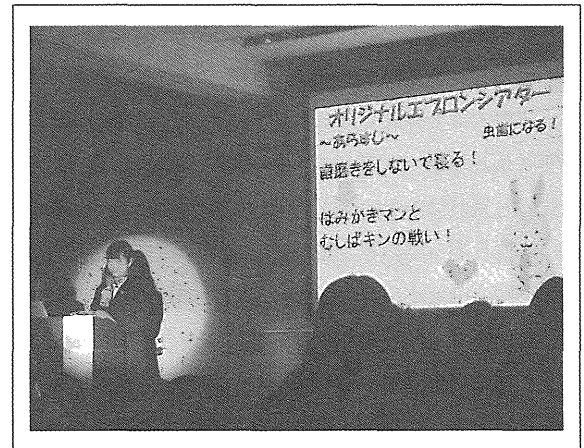 オリジナルエプロンシアター
~あらすじ~
虫歯になる!
歯磨きをしないで寝る!
はみがきマンと
むしばキンの戦い!